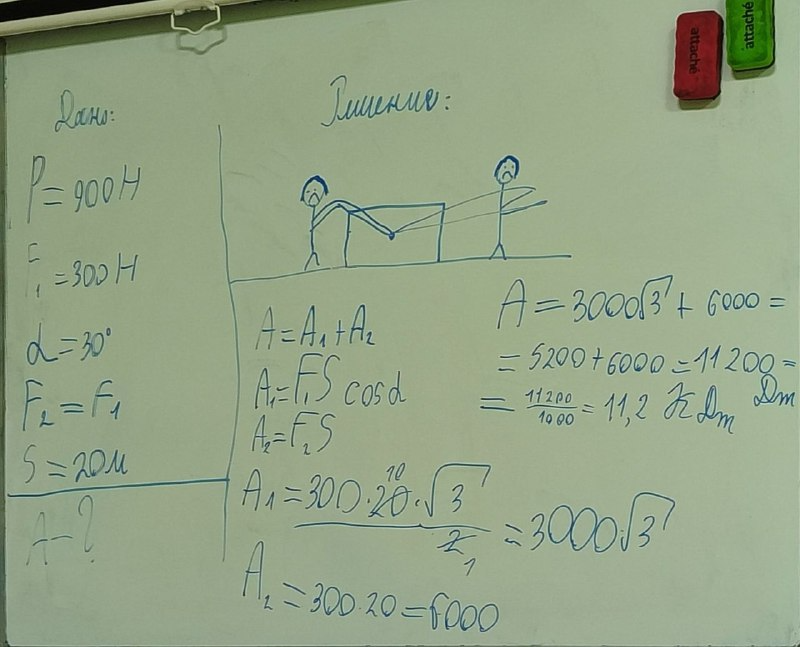 attaché
attaché
Дано:
P = 900 Н
F₁ = 300 Н
α = 30°
F₂ = F₁
S = 20м
A - ?
Решение:
A = A₁ + A₂
A₁ = F₁S cosα
A₂ = F₂S
A₁ = 300 · 20 10 · √3 / 2 1 = 3000√3
A₂ = 300 · 20 = 6000
A = 3000√3 + 6000 =
= 5200 + 6000 = 11200 = Dm
= 11200/1000 = 11,2 К Dm